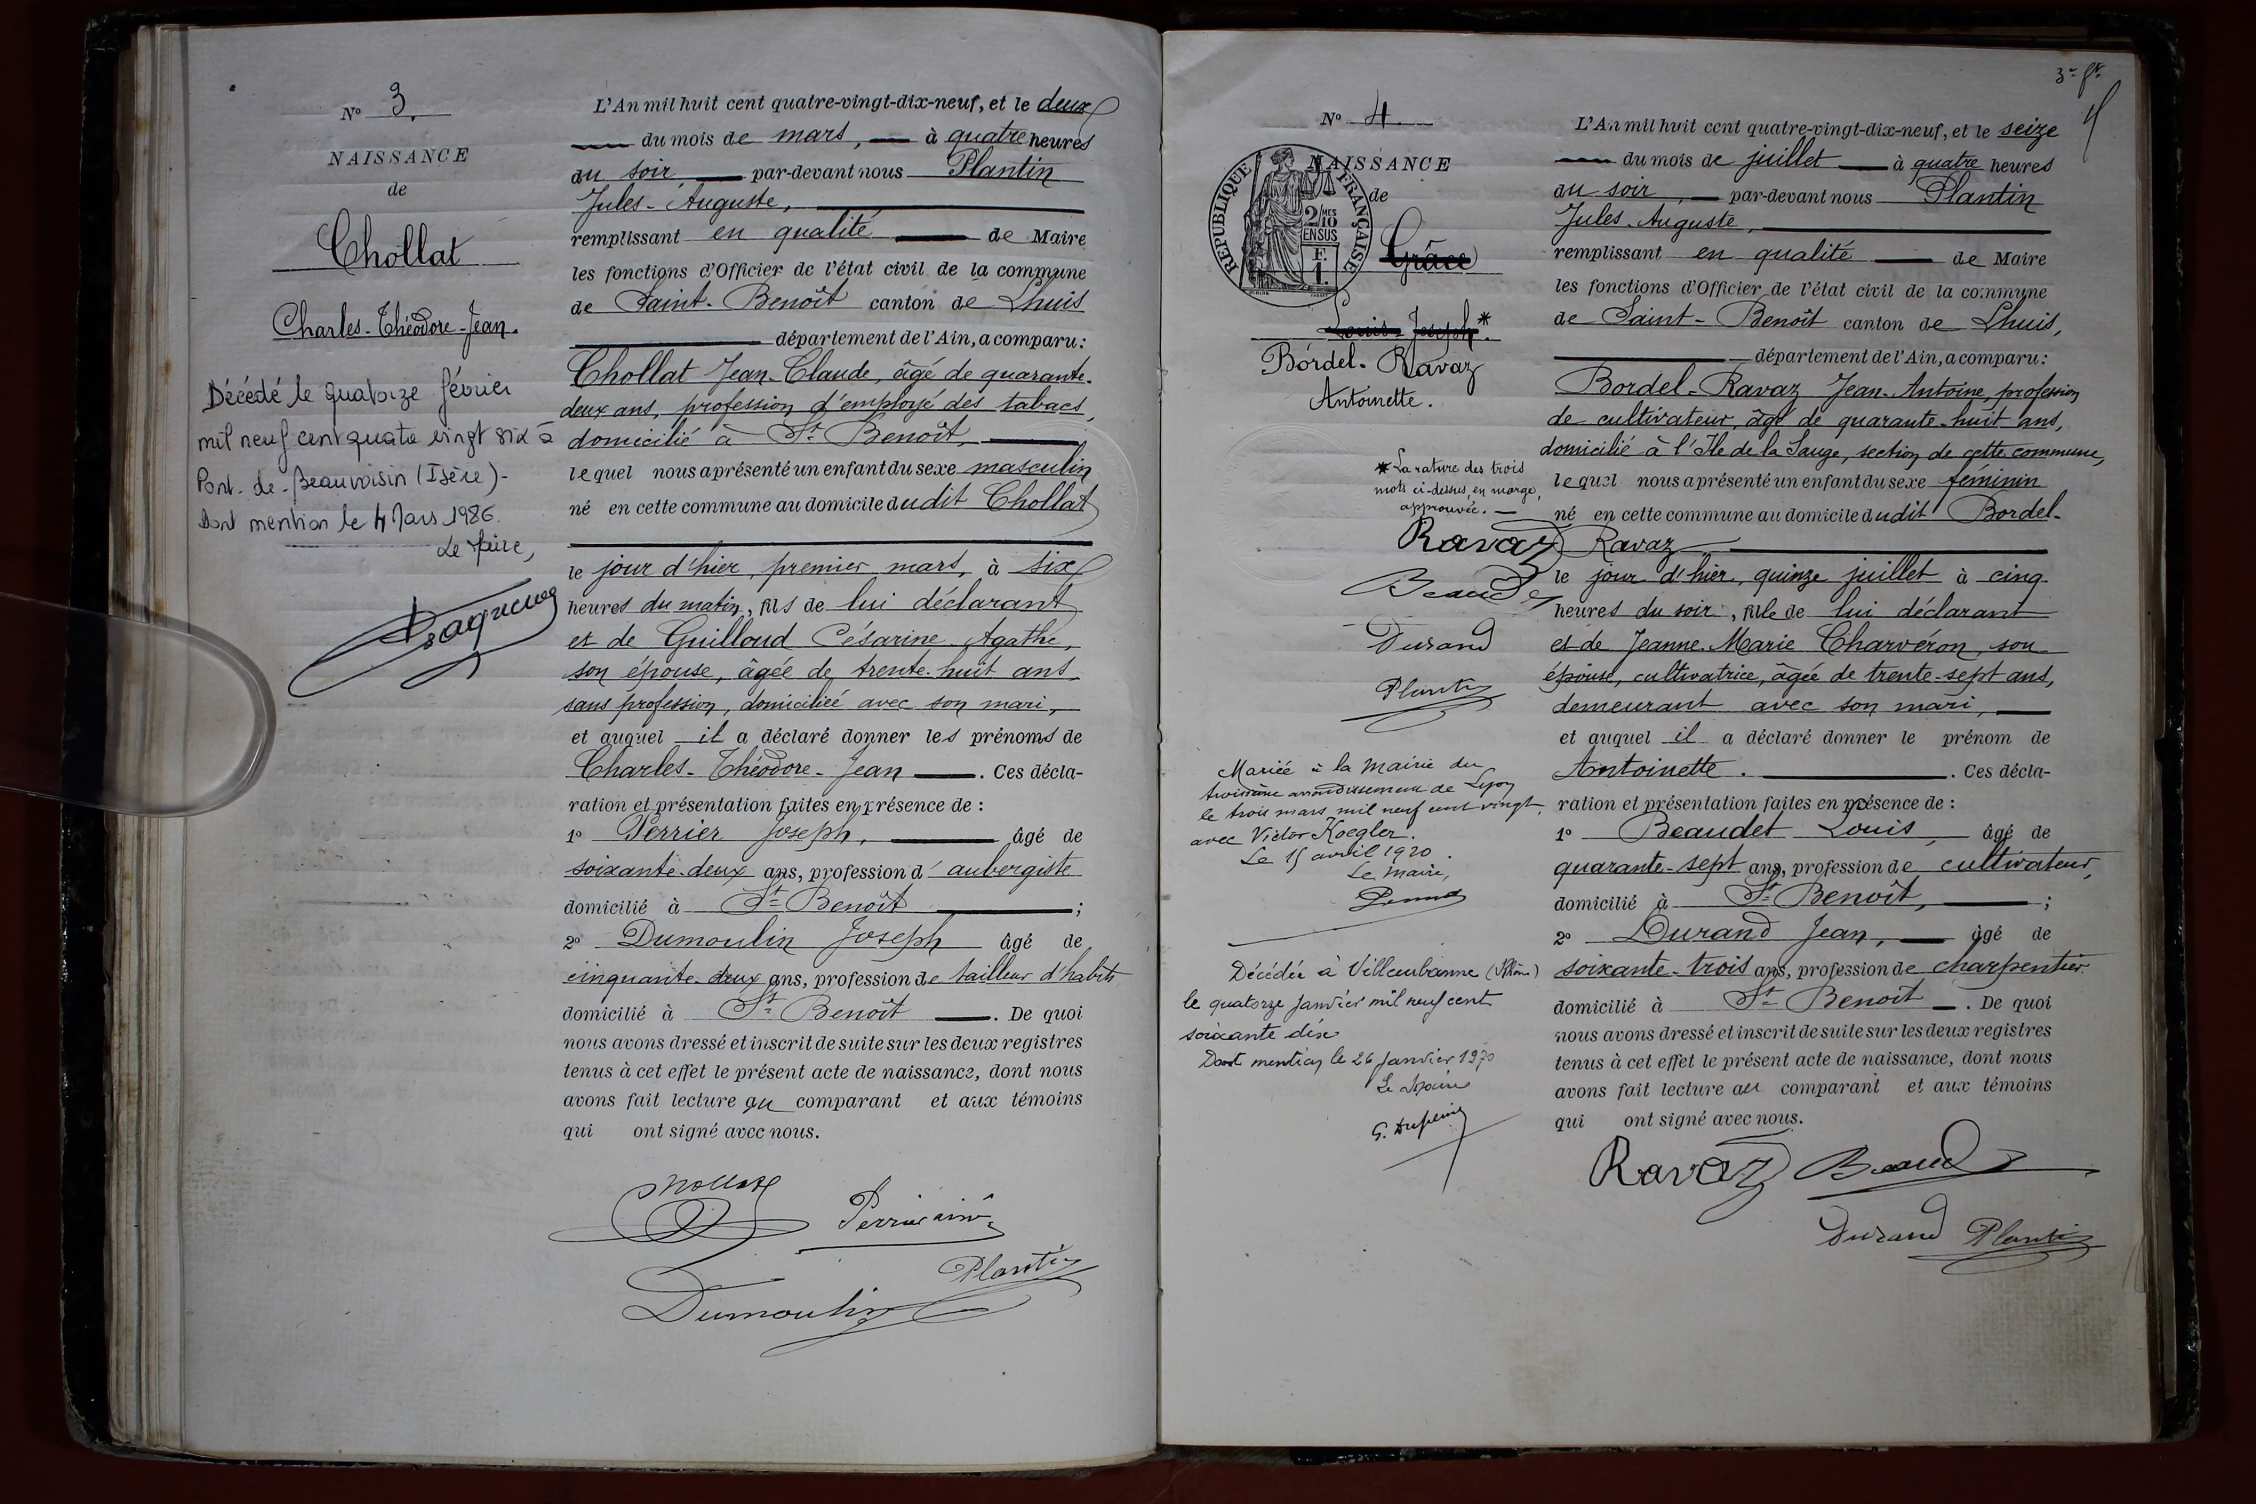 Nº 3.
NAISSANCE
de
Chollat
Charles-Théodore-Jean.
Décédé le quatorze février
mil neuf cent quatre vingt six à
Pont-de-Beauvoisin (Isère)-
Dont mention le 4 Mars 1986.
Le Maire,
L'An mil huit cent quatre-vingt-dix-neuf, et le deux
du mois de mars, à quatre heures
du soir par-devant nous Plantin
Jules-Auguste,
remplissant en qualité de Maire
les fonctions d'Officier de l'état civil de la commune
de Saint-Benoît canton de Lhuis
département de l'Ain, a comparu:
Chollat Jean-Claude, âgé de quarante-
deux ans, profession d'employé des tabacs,
domicilié à St Benoît,
lequel nous a présenté un enfant du sexe masculin
né en cette commune au domicile dudit Chollat
le jour d'hier, premier mars, à six
heures du matin, fils de lui déclarant
et de Guilloud Césarine Agathe,
son épouse, âgée de trente-huit ans,
sans profession, domiciliée avec son mari,
et auquel il a déclaré donner les prénoms de
Charles-Théodore-Jean. Ces décla-
ration et présentation faites en présence de :
1º Perrier Joseph, âgé de
soixante-deux ans, profession d'aubergiste
domicilié à St Benoît ;
2º Dumoulin Joseph âgé de
cinquante-deux ans, profession de tailleur d'habits
domicilié à St Benoît. De quoi
nous avons dressé et inscrit de suite sur les deux registres
tenus à cet effet le présent acte de naissance, dont nous
avons fait lecture au comparant et aux témoins
qui ont signé avec nous.
Chollat
Perrier aîné
Plantin
Dumoulin
3e ft.
Nº 4.
NAISSANCE
de
RÉPUBLIQUE FRANÇAISE
2/10 MES
EN SUS
F.
1.
Grâce
Louis-Joseph.*
Bordel-Ravaz
Antoinette.
* La rature des trois
mots ci-dessus, en marge,
approuvée.
Ravaz
Beaudet
Durand
Plantin
Mariée à la Mairie du
troisième arrondissement de Lyon
le trois mars mil neuf cent vingt
avec Victor Koegler.
Le 15 avril 1920.
Le Maire,
Décédée à Villeurbanne (Rhône)
le quatorze Janvier mil neuf cent
soixante dix
Dont mention le 26 Janvier 1970
Le Maire
L'An mil huit cent quatre-vingt-dix-neuf, et le seize
du mois de juillet à quatre heures
du soir, par-devant nous Plantin
Jules-Auguste,
remplissant en qualité de Maire
les fonctions d'Officier de l'état civil de la commune
de Saint-Benoît canton de Lhuis,
département de l'Ain, a comparu:
Bordel-Ravaz Jean-Antoine, profession
de cultivateur, âgé de quarante-huit ans,
domicilié à l'Ile de la Sauge, section de cette commune,
lequel nous a présenté un enfant du sexe féminin
né en cette commune au domicile dudit Bordel-
Ravaz
le jour d'hier, quinze juillet à cinq
heures du soir, fille de lui déclarant
et de Jeanne-Marie Charvéron, son
épouse, cultivatrice, âgée de trente-sept ans,
demeurant avec son mari,
et auquel il a déclaré donner le prénom de
Antoinette. Ces décla-
ration et présentation faites en présence de :
1º Beaudet Louis, âgé de
quarante-sept ans, profession de cultivateur,
domicilié à St Benoît, ;
2º Durand Jean, âgé de
soixante-trois ans, profession de charpentier
domicilié à St Benoît. De quoi
nous avons dressé et inscrit de suite sur les deux registres
tenus à cet effet le présent acte de naissance, dont nous
avons fait lecture au comparant et aux témoins
qui ont signé avec nous.
Ravaz Beaudet
Durand Plantin